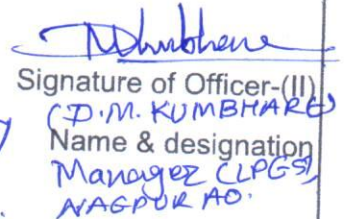 Signature of Officer-(II)
(D.M. KUMBHARE)
Name & designation
Manager (LPGS),
NAGPUR AO.